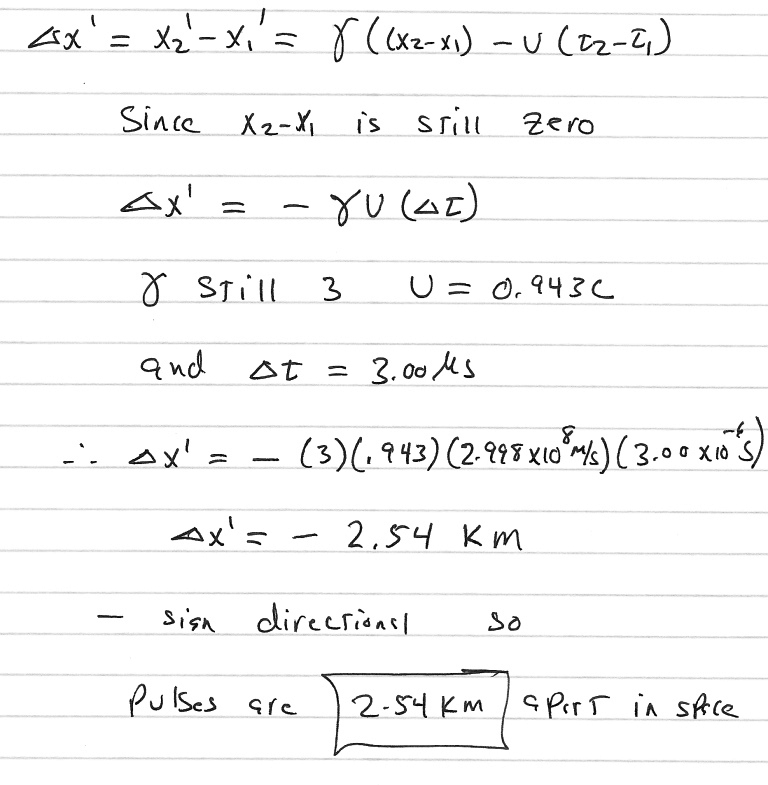 Δx' = x₂' - x₁' = γ((x₂-x₁) - U(t₂-t₁)
Since x₂-x₁ is still zero
Δx' = - γU(Δt)
γ still 3 U = 0.943C
and Δt = 3.00 μs
∴ Δx' = - (3)(.943)(2.998 x10⁸ m/s)(3.00 x10⁻⁶ s)
Δx' = - 2.54 Km
- sign directional so
Pulses are 2.54 Km apart in space